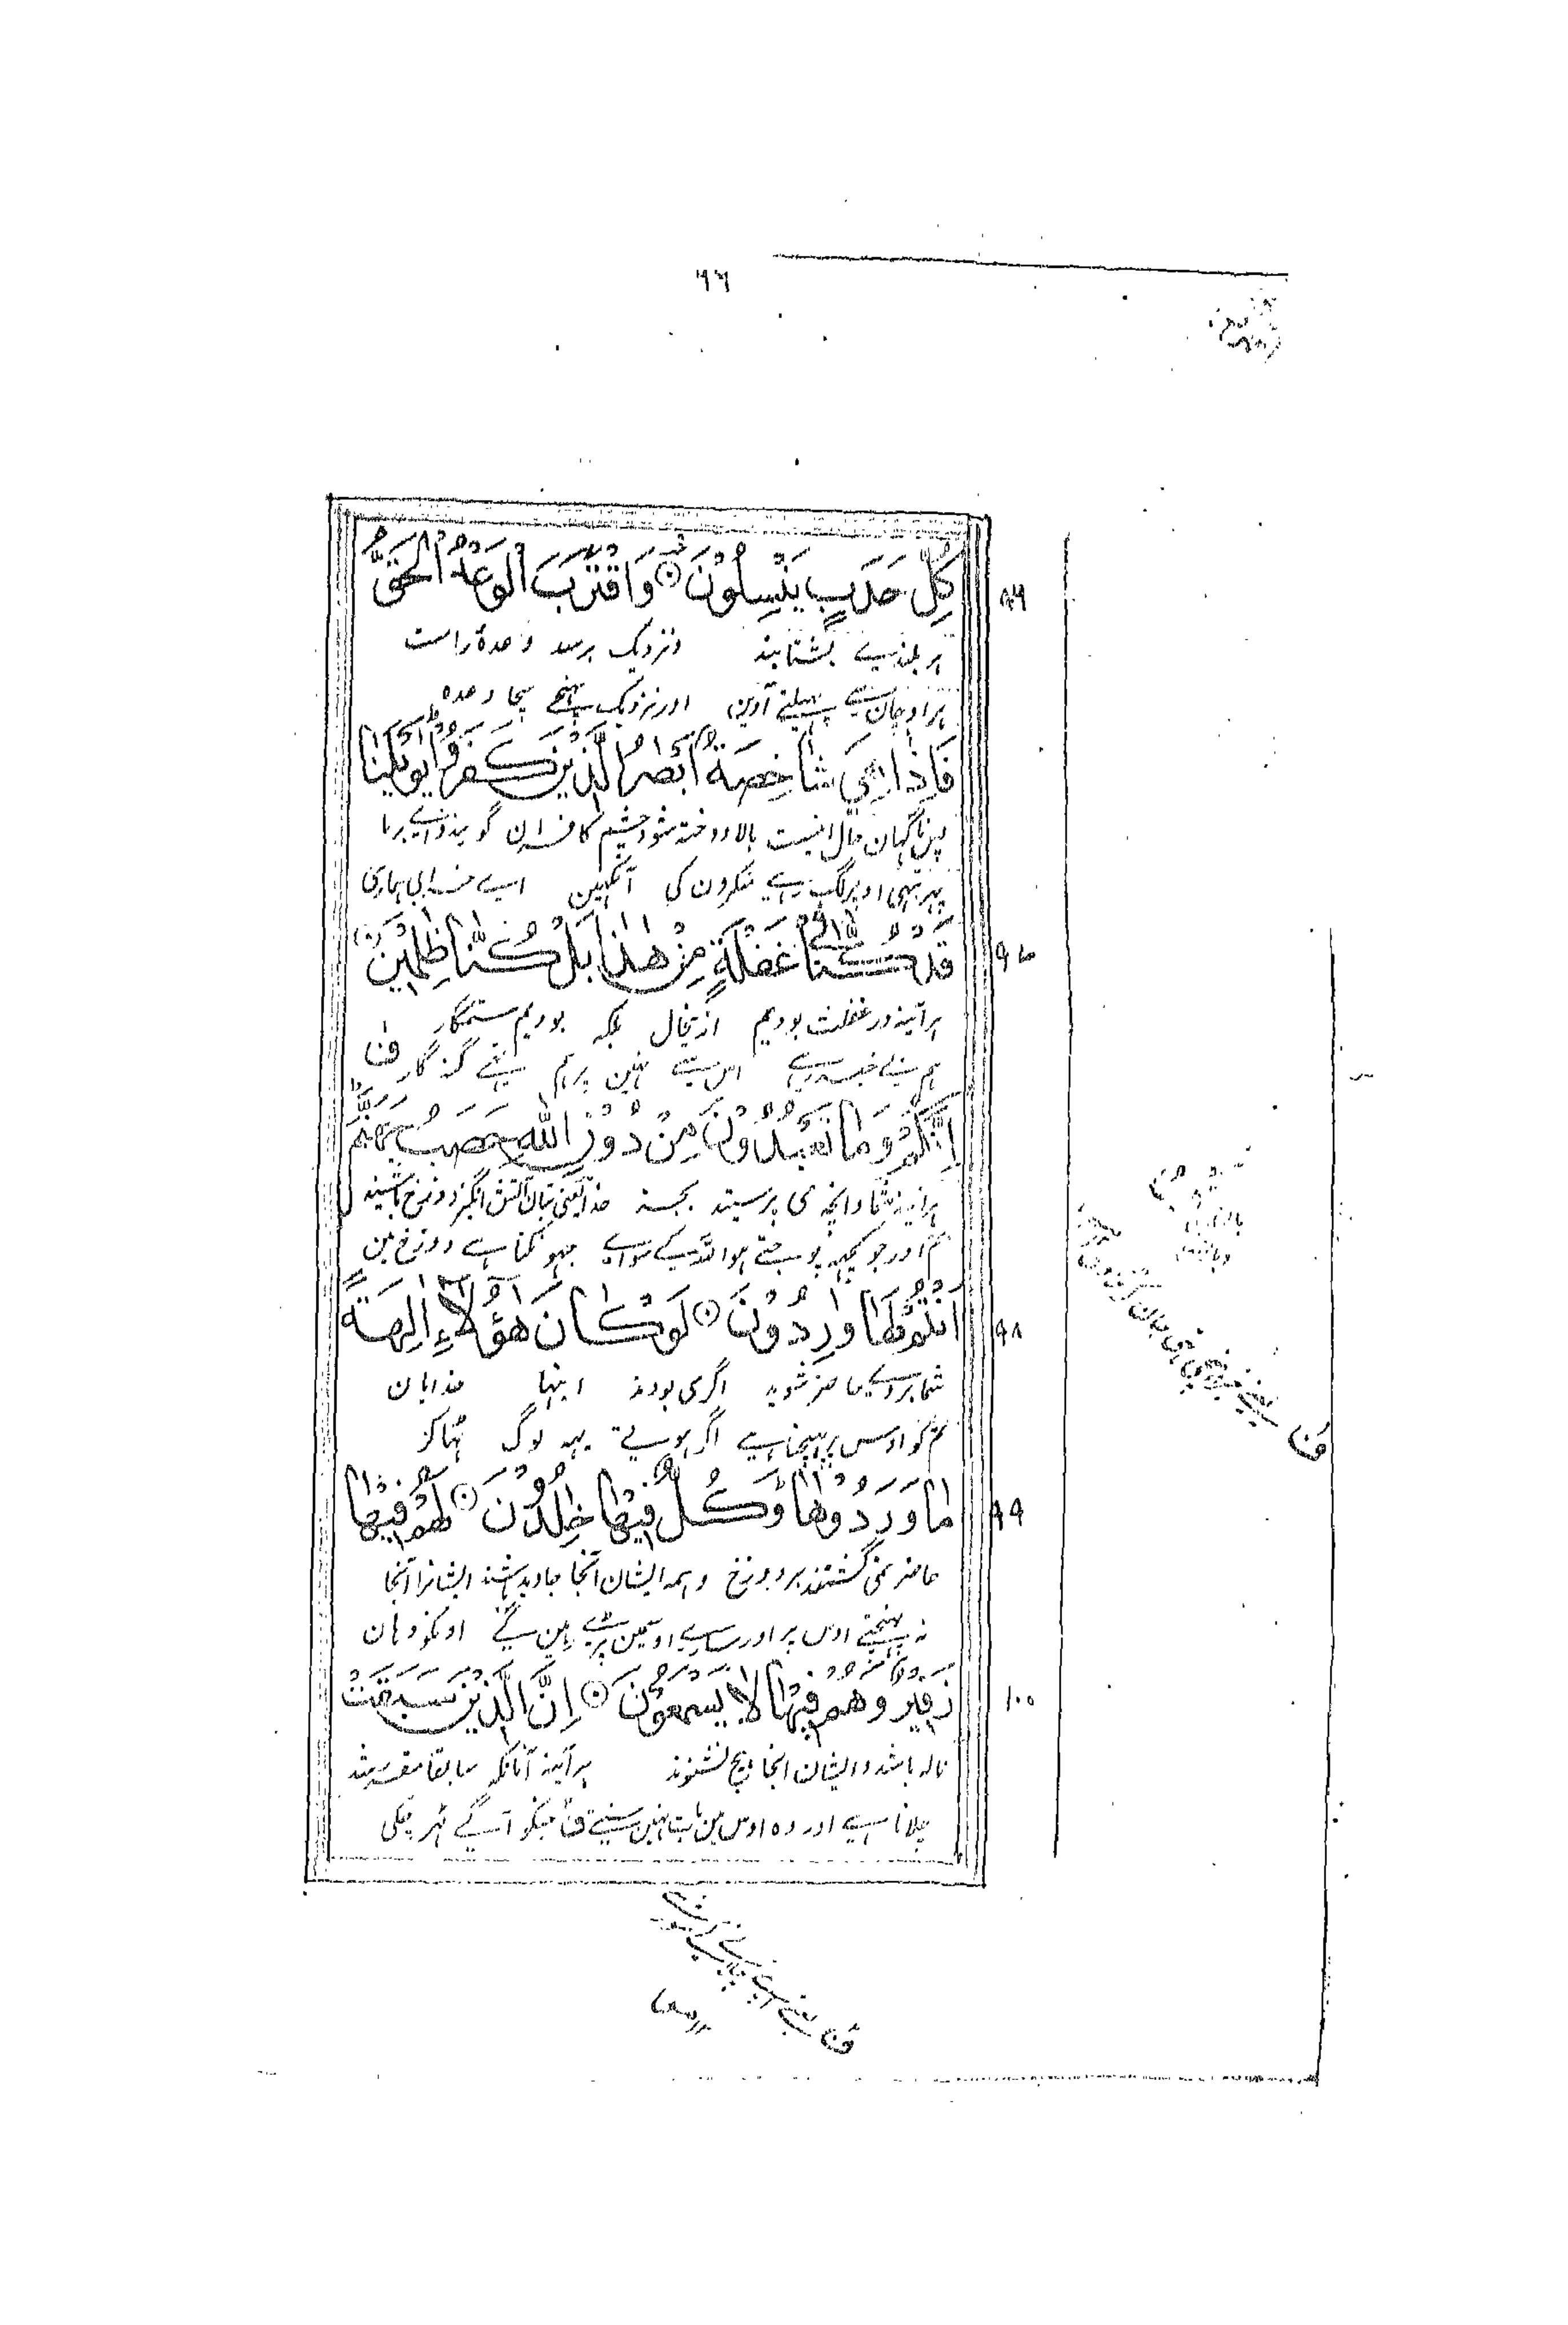 ٦٦
كُلِّ حَدَبٍ يَنْسِلُوْنَ ۝ وَاقْتَرَبَ الْوَعْدُ الْحَقُّ
٩٦
ہر بلندی بشتابند ونزدیک برسد وعدۂ راست
ہر اوچان سے پہیلتے آوین اور نزدیک پہنچے سچا وعدہ
فَاِذَا هِىَ شَاخِصَةٌ اَبْصَارُ الَّذِيْنَ كَفَرُوْا يٰوَيْلَنَا
پس ناگہان حال اینست بالا دوختہ شود چشم کافران گویند واے برما
پہر تبہی اوپر لگ رہے منکرون کی آنکہین اے خرابی ہماری
قَدْ كُنَّا فِىْ غَفْلَةٍ مِنْ هٰذَا بَلْ كُنَّا ظٰلِمِيْنَ ۝
٩٧
ہرآئنہ در غفلت بودیم ازینحال بلکہ بودیم ستمگار
ہم بے خبر رہے اس سے نہین پر ہم تہے گنہگار ف
اِنَّكُمْ وَمَا تَعْبُدُوْنَ مِنْ دُوْنِ اللّٰهِ حَصَبُ جَهَنَّمَ
ہرآئنہ شما وانچہ می پرستید بجز خدا یعنی بتان آتش انگیز دوزخ باشید
تم اور جو کچہہ پوجتے ہو اللہ کے سواے جہونکنا ہے دوزخ مین
اَنْتُمْ لَهَا وَارِدُوْنَ ۝ لَوْ كَانَ هٰؤُلَاءِ اٰلِهَةً
٩٨
شما بروے حاضر شوید اگر می بودند اینہا خدایان
تم کو اوس پر پہنچنا ہے اگر ہوتے یہہ لوگ ٹہاکر
مَا وَرَدُوْهَا وَكُلٌّ فِيْهَا خٰلِدُوْنَ ۝ لَهُمْ فِيْهَا
٩٩
حاضر نمی گشتند بردوزخ وہمہ ایشان آنجا جاوید باشند ایشانرا آنجا
نہ پہنچتے اوس پر اور سارے اوسمین پڑے رہین گے اونکو وہان
زَفِيْرٌ وَهُمْ فِيْهَا لَا يَسْمَعُوْنَ ۝ اِنَّ الَّذِيْنَ سَبَقَتْ
١٠٠
نالہ باشد وایشان آنجا ہیچ نشنوند ہرآئنہ آنانکہ سابقا مقرر شد
چلانا ہے اور وہ اوس مین بات نہین سنتے ف جنکو آگے ٹہر چکی